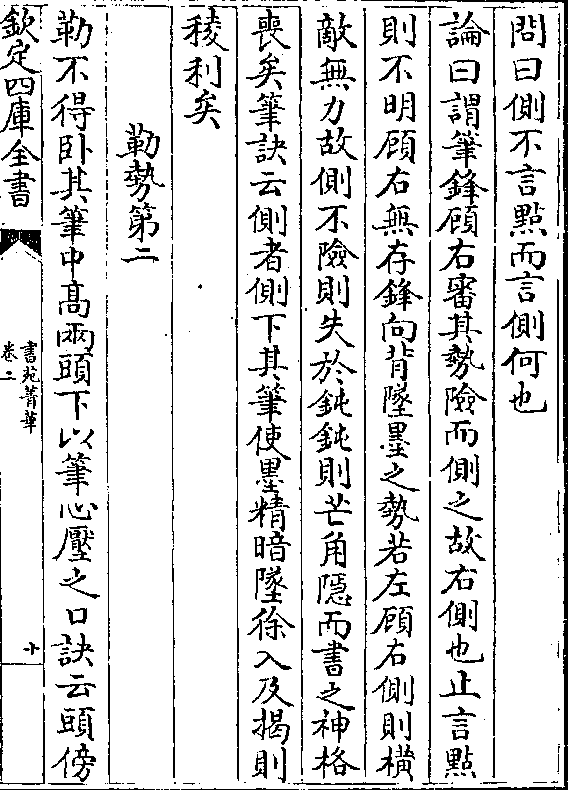 問曰側不言點而言側何也
論曰謂筆鋒顧右審其勢險而側之故右側也止言點
則不明顧右無存鋒向背墜墨之勢若左顧右側則橫
敵無力故側不險則失於鈍鈍則芒角隱而書之神格
喪矣筆訣云側者側下其筆使墨精暗墜徐入及揭則
稜利矣
勒勢第二
勒不得卧其筆中髙兩頭下以筆心壓之口訣云頭傍
欽定四庫全書
書苑菁華
卷二
十